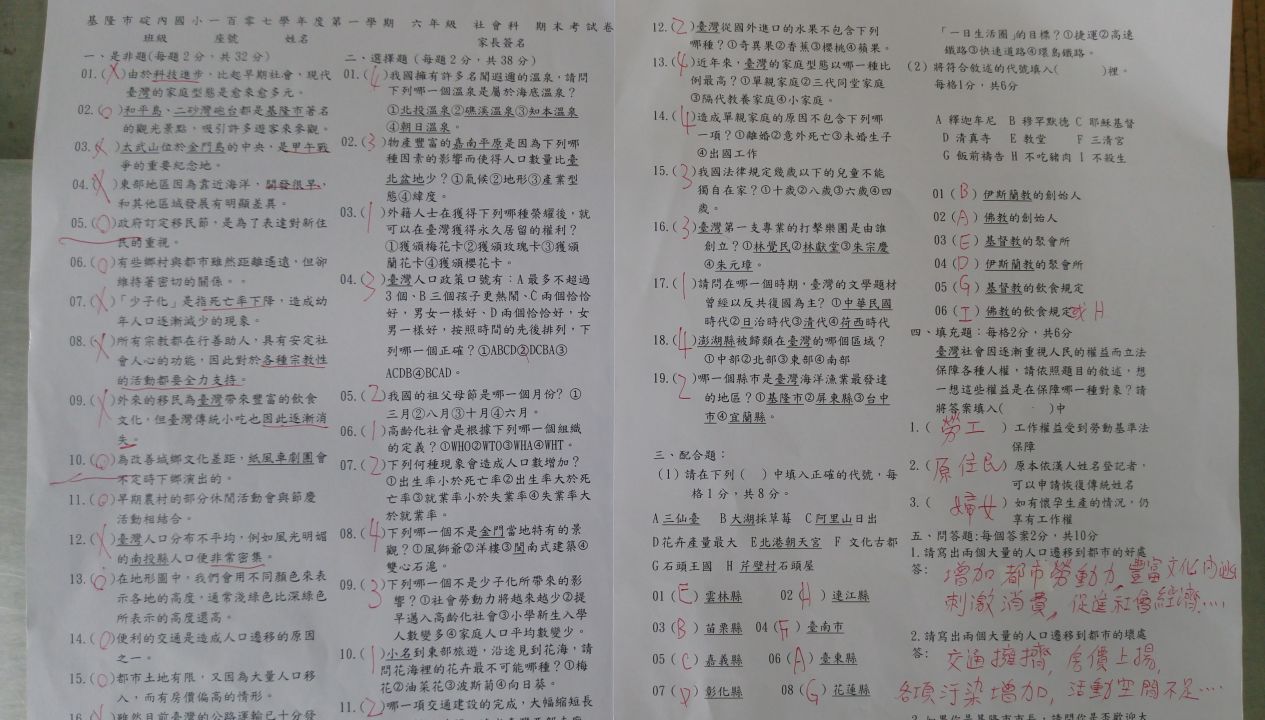 基隆市碇內國小一百零七學年度第一學期 六年級 社會科 期末考試卷
班級 座號 姓名 家長簽名
一、是非題(每題2分，共32分)
01.(X)由於科技進步，比起早期社會，現代
臺灣的家庭型態是愈來愈多元。
02.(O)和平島、二砂灣砲台都是基隆市著名
的觀光景點，吸引許多遊客來參觀。
03.(X)太武山位於金門島的中央，是甲午戰
爭的重要紀念地。
04.(X)東部地區因為靠近海洋，開發很早，
和其他區域發展有明顯差異。
05.(O)政府訂定移民節，是為了表達對新住
民的重視。
06.(O)有些鄉村與都市雖然距離遙遠，但卻
維持著密切的關係。。
07.(X)「少子化」是指死亡率下降，造成幼
年人口逐漸減少的現象。
08.(X)所有宗教都在行善助人，具有安定社
會人心的功能，因此對於各種宗教性
的活動都要全力支持。
09.(X)外來的移民為臺灣帶來豐富的飲食
文化，但臺灣傳統小吃也因此逐漸消
失。
10.(O)為改善城鄉文化差距，紙風車劇團會
不定時下鄉演出的。
11.(O)早期農村的部分休閒活動會與節慶
活動相結合。
12.(X)臺灣人口分布不平均，例如風光明媚
的南投縣人口便非常密集。
13.(O)在地形圖中，我們會用不同顏色來表
示各地的高度，通常淺綠色比深綠色
所表示的高度還高。
14.(O)便利的交通是造成人口遷移的原因
之一。
15.(O)都市土地有限，又因為大量人口移
入，而有房價偏高的情形。
16.(X)雖然目前臺灣的公路運輸已十分發
二、選擇題(每題2分，共38分)
01.(4)我國擁有許多名聞遐邇的溫泉，請問
下列哪一個溫泉是屬於海底溫泉?
①北投溫泉②礁溪溫泉③知本溫泉
④朝日溫泉。
02.(3)物產豐富的嘉南平原是因為下列哪
種因素的影響而使得人口數量比臺
北盆地少?①氣候②地形③產業型
態④緯度。
03.(1)外籍人士在獲得下列哪種榮耀後，就
可以在臺灣獲得永久居留的權利?
①獲頒梅花卡②獲頒玫瑰卡③獲頒
蘭花卡④獲頒櫻花卡。
04.(3)臺灣人口政策口號有：A最多不超過
3個、B三個孩子更熱鬧、C兩個恰恰
好，男女一樣好、D兩個恰恰好，女
男一樣好，按照時間的先後排列，下
列哪一個正確?①ABCD②DCBA③
ACDB④BCAD。
05.(2)我國的祖父母節是哪一個月份?①
三月②八月③十月④六月。
06.(1)高齡化社會是根據下列哪一個組織
的定義?①WHO②WTO③WHA④WHT。
07.(2)下列何種現象會造成人口數增加?
①出生率小於死亡率②出生率大於死
亡率③就業率小於失業率④失業率大
於就業率。
08.(4)下列哪一個不是金門當地特有的景
觀?①風獅爺②洋樓③閩南式建築④
雙心石滬。
09.(3)下列哪一個不是少子化所帶來的影
響?①社會勞動力將越來越少②提
早邁入高齡化社會③小學新生入學
人數變多④家庭人口平均數變少。
10.(1)小名到東部旅遊，沿途見到花海，請
問花海裡的花卉最不可能哪種?①梅
花②油菜花③波斯菊④向日葵。
11.(2)哪一項交通建設的完成，大幅縮短長
12.(2)臺灣從國外進口的水果不包含下列
哪種?①奇異果②香蕉③櫻桃④蘋果。
13.(4)近年來，臺灣的家庭型態以哪一種比
例最高?①單親家庭②三代同堂家庭
③隔代教養家庭④小家庭。
14.(4)造成單親家庭的原因不包含下列哪
一項?①離婚②意外死亡③未婚生子
④出國工作
15.(3)我國法律規定幾歲以下的兒童不能
獨自在家?①十歲②八歲③六歲④四
歲。
16.(3)臺灣第一支專業的打擊樂團是由誰
創立?①林覺民②林獻堂③朱宗慶
④朱元璋。
17.(1)請問在哪一個時期，臺灣的文學題材
曾經以反共復國為主?①中華民國
時代②日治時代③清代④荷西時代
18.(4)澎湖縣被歸類在臺灣的哪個區域?
①中部②北部③東部④南部
19.(2)哪一個縣市是臺灣海洋漁業最發達
的地區?①基隆市②屏東縣③台中
市④宜蘭縣。
三、配合題：
(1)請在下列( )中填入正確的代號，每
格1分，共8分。
A三仙臺 B大湖採草莓 C阿里山日出
D花卉產量最大 E北港朝天宮 F 文化古都
G石頭王國 H 芹壁村石頭屋
01(E)雲林縣 02(H)連江縣
03(B)苗栗縣 04(F)臺南市
05(C)嘉義縣 06(A)臺東縣
07(D)彰化縣 08(G)花蓮縣
「一日生活圈」的目標?①捷運②高速
鐵路③快速道路④環島鐵路。
(2)將符合敘述的代號填入( )裡。
每格1分，共6分
A 釋迦牟尼 B 穆罕默德 C 耶穌基督
D 清真寺 E 教堂 F 三清宮
G 飯前禱告 H 不吃豬肉 I 不殺生
01(B)伊斯蘭教的創始人
02(A)佛教的創始人
03(E)基督教的聚會所
04(D)伊斯蘭教的聚會所
05(G)基督教的飲食規定
06(I)佛教的飲食規定或H
四、填充題：每格2分，共6分
臺灣社會因逐漸重視人民的權益而立法
保障各種人權，請依照題目的敘述，想
一想這些權益是在保障哪一種對象?請
將答案填入( )中
1.(勞工)工作權益受到勞動基準法
保障
2.(原住民)原本依漢人姓名登記者，
可以申請恢復傳統姓名
3.(婦女)如有懷孕生產的情況，仍
享有工作權
五、問答題:每個答案2分，共10分
1.請寫出兩個大量的人口遷移到都市的好處
答：增加都市勞動力，豐富文化內涵
刺激消費，促進社會經濟....
2.請寫出兩個大量的人口遷移到都市的壞處
答：交通擁擠，房價上揚，
各項汙染增加，活動空間不足....
3.如果你是基隆市市長，請問你是否歡迎大